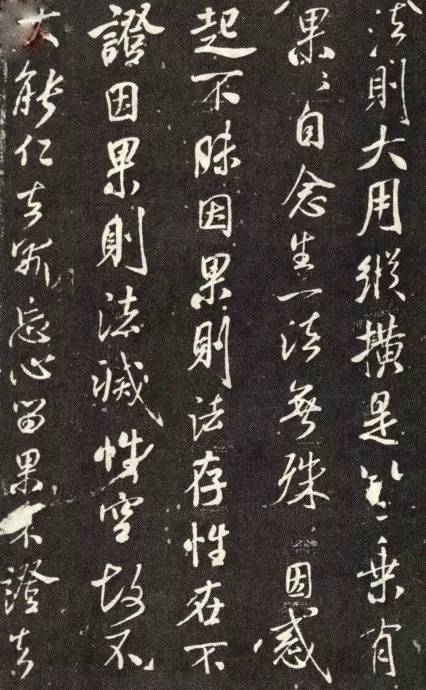 法則大用縱橫是以一乘有
果〻自念生一法無殊因感
起不昧因果則法存性在不
證因果則法滅性空故不
能仁者忘心留果不證者